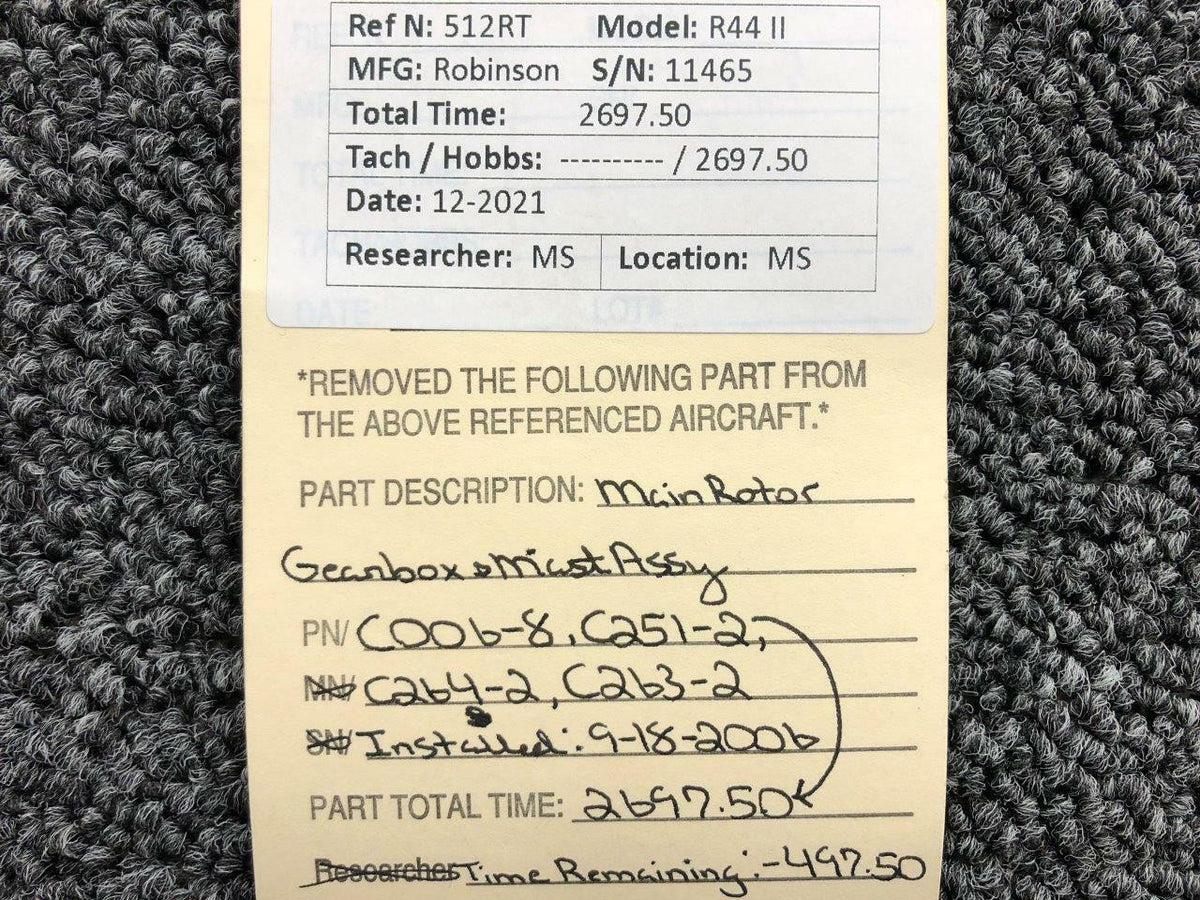 Ref N: 512RT Model: R44 II
MFG: Robinson S/N: 11465
Total Time: 2697.50
Tach / Hobbs: ---------- / 2697.50
Date: 12-2021
Researcher: MS Location: MS
DATE LOT#
*REMOVED THE FOLLOWING PART FROM
THE ABOVE REFERENCED AIRCRAFT.*
PART DESCRIPTION: Main Rotor
Gearbox & Mast Assy
PN/ C006-8, C251-2,
MN/ C264-2, C263-2
SN/ Installed: 9-18-2006
PART TOTAL TIME: 2697.50
Researcher Time Remaining: -497.50